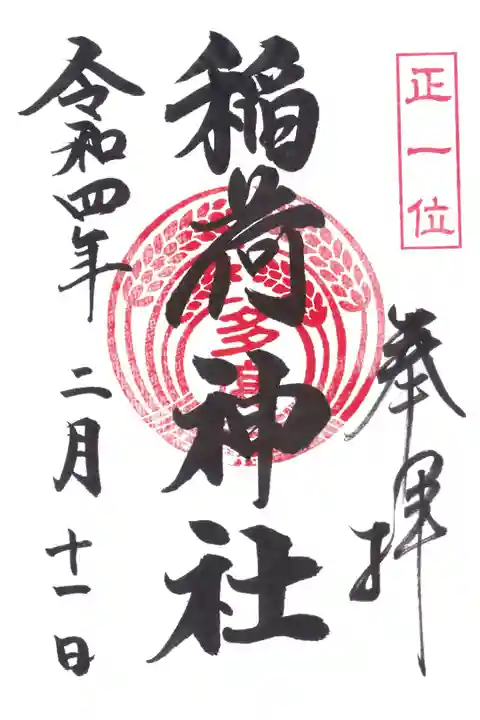 正一位
奉拝
稲荷神社
多
令和四年
二月
十一日